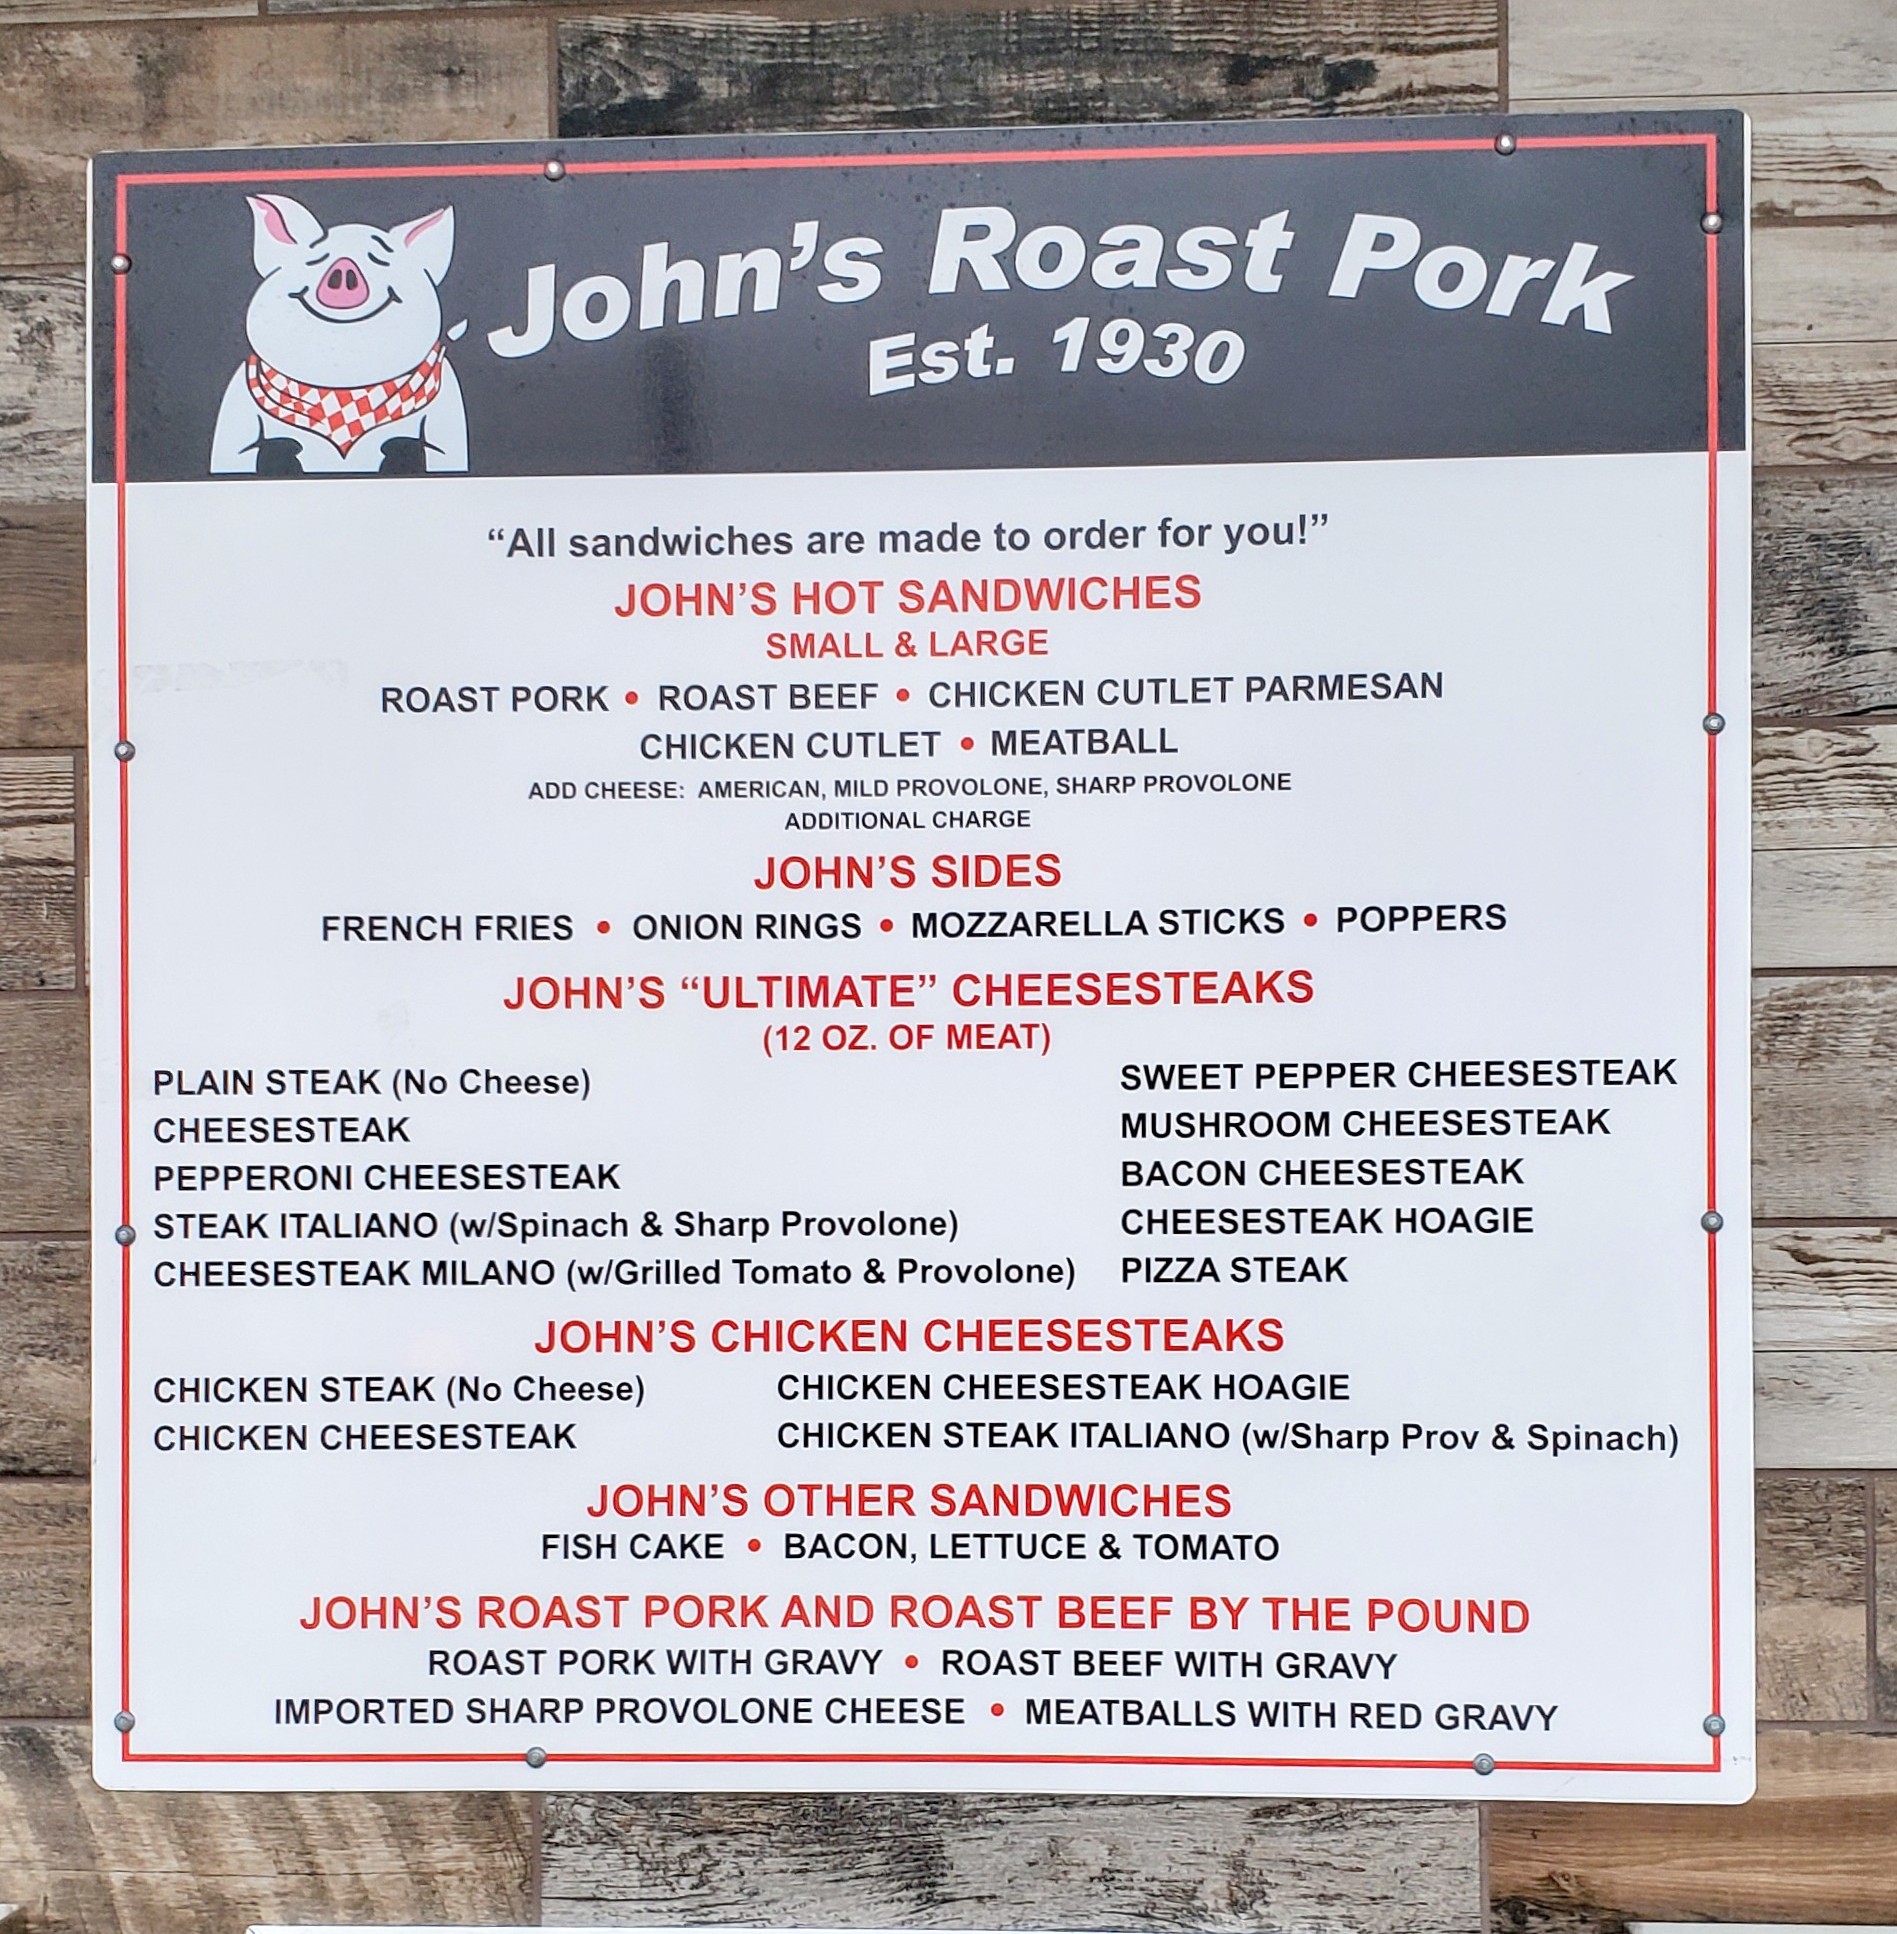 John's Roast Pork
Est. 1930
“All sandwiches are made to order for you!”
JOHN'S HOT SANDWICHES
SMALL & LARGE
ROAST PORK • ROAST BEEF • CHICKEN CUTLET PARMESAN
CHICKEN CUTLET • MEATBALL
ADD CHEESE: AMERICAN, MILD PROVOLONE, SHARP PROVOLONE
ADDITIONAL CHARGE
JOHN'S SIDES
FRENCH FRIES • ONION RINGS • MOZZARELLA STICKS • POPPERS
JOHN'S “ULTIMATE” CHEESESTEAKS
(12 OZ. OF MEAT)
PLAIN STEAK (No Cheese)
CHEESESTEAK
PEPPERONI CHEESESTEAK
STEAK ITALIANO (w/Spinach & Sharp Provolone)
CHEESESTEAK MILANO (w/Grilled Tomato & Provolone)
SWEET PEPPER CHEESESTEAK
MUSHROOM CHEESESTEAK
BACON CHEESESTEAK
CHEESESTEAK HOAGIE
PIZZA STEAK
JOHN'S CHICKEN CHEESESTEAKS
CHICKEN STEAK (No Cheese)
CHICKEN CHEESESTEAK
CHICKEN CHEESESTEAK HOAGIE
CHICKEN STEAK ITALIANO (w/Sharp Prov & Spinach)
JOHN'S OTHER SANDWICHES
FISH CAKE • BACON, LETTUCE & TOMATO
JOHN'S ROAST PORK AND ROAST BEEF BY THE POUND
ROAST PORK WITH GRAVY • ROAST BEEF WITH GRAVY
IMPORTED SHARP PROVOLONE CHEESE • MEATBALLS WITH RED GRAVY